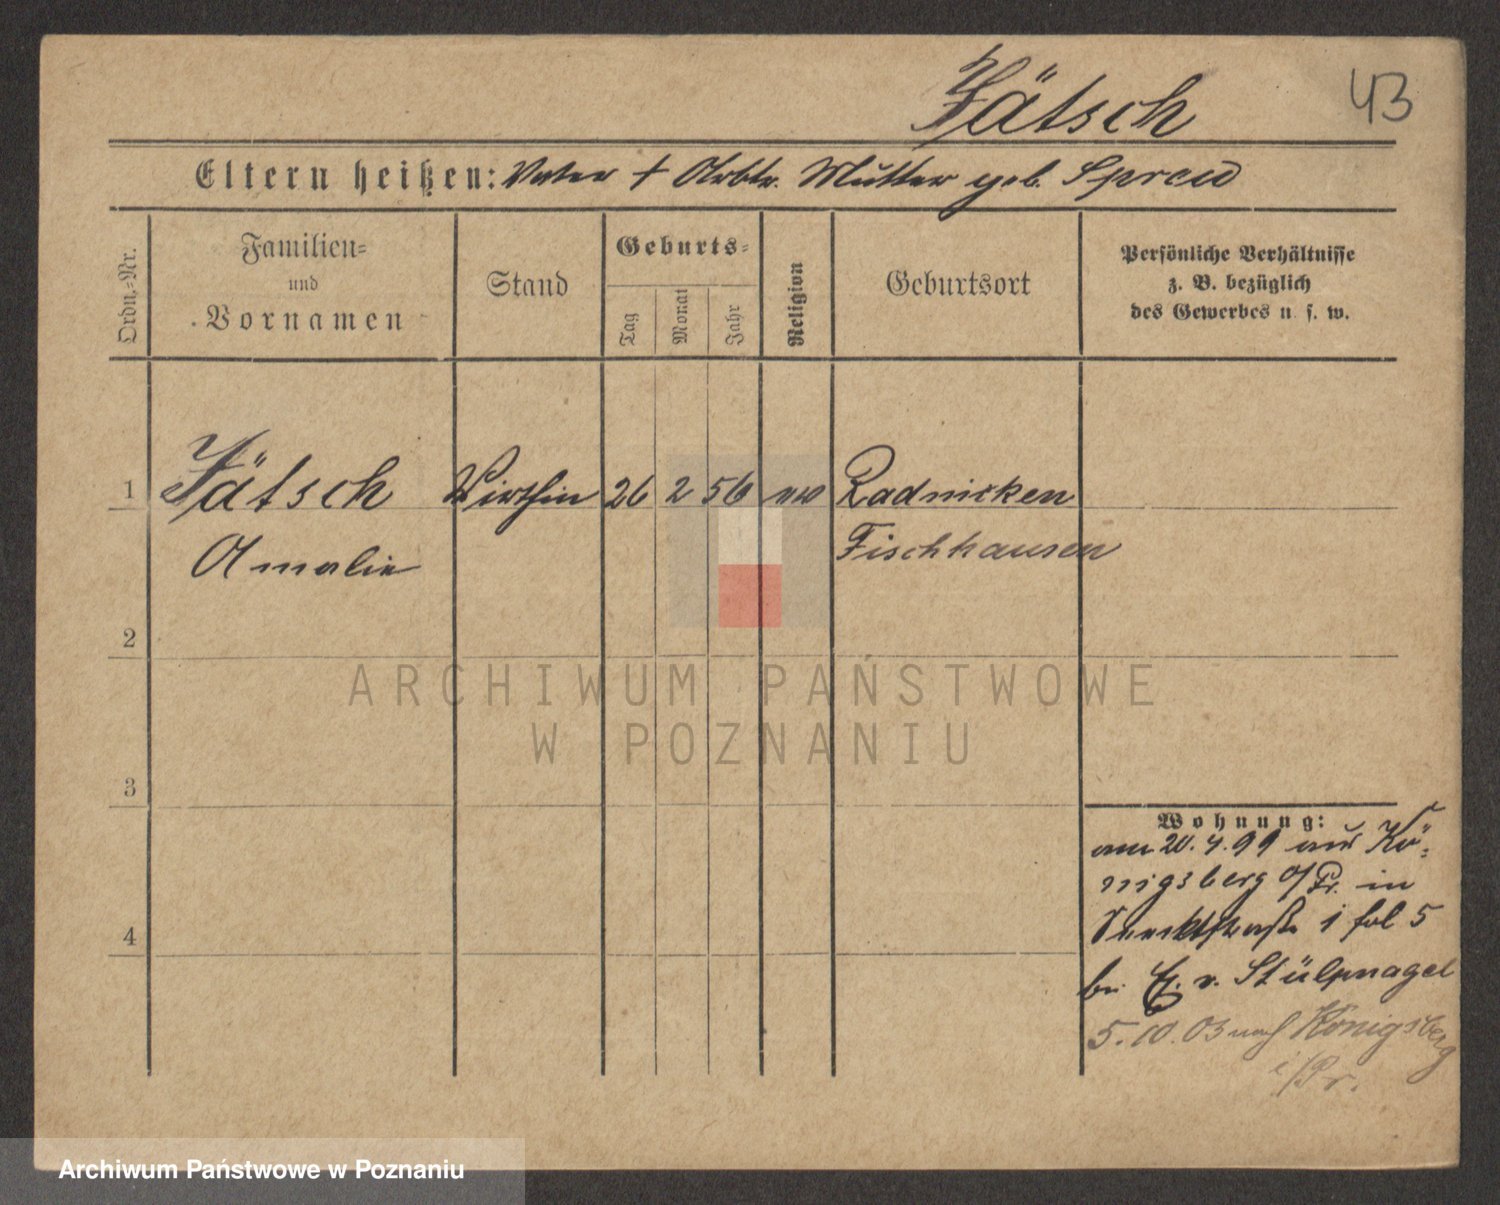 Jätsch
43
Eltern heißen: Vater † Arbtr. Mutter geb. Spreu
Ordn.-Nr.
Familien=
und
Vornamen
Stand
Geburts=
Tag
Monat
Jahr
Religion
Geburtsort
Persönliche Verhältnisse
z. B. bezüglich
des Gewerbes u. s. w.
1 Jätsch Wirthin 26 2 56 ev Radnicken
Amalie Fischhausen
2
3
4
ARCHIWUM PAŃSTWOWE
W POZNANIU
Wohnung:
am 20.4.99 aus Kö=
nigsberg O/Pr. in
1 fol 5
bei v. Stülpnagel
5.10.03 nach Königsberg
i/Pr.
Archiwum Państwowe w Poznaniu